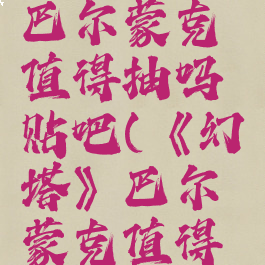 巴尔蒙克
值得抽吗
贴吧(《幻
塔》巴尔
蒙克值得